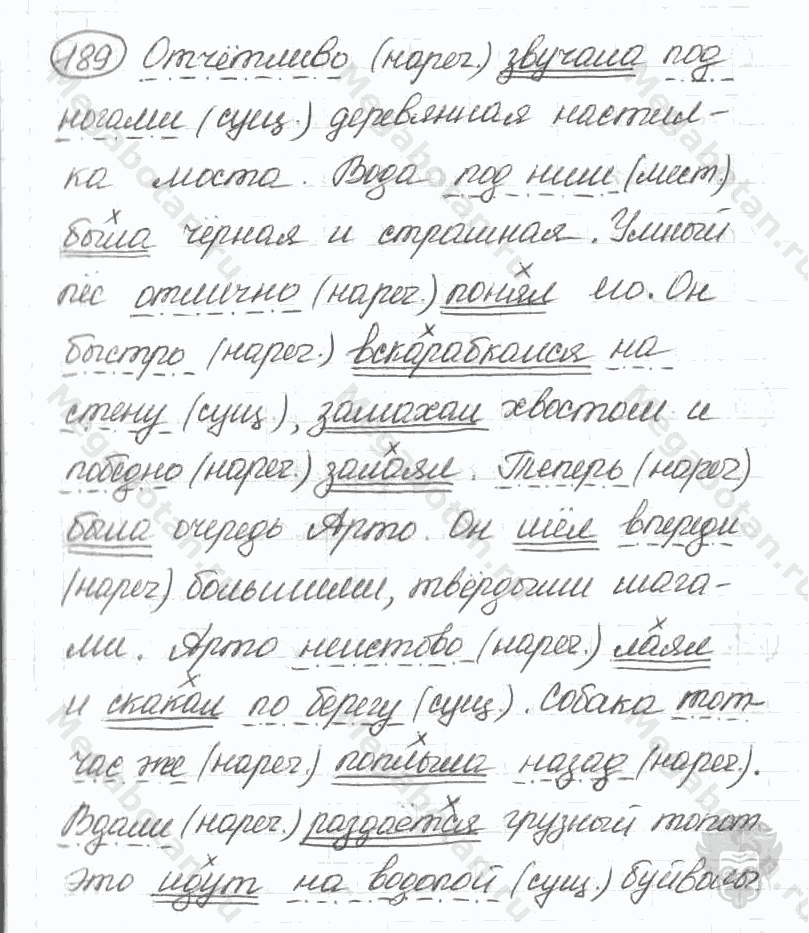 189 Отчётливо (нареч.) звучала под
ногами (сущ.) деревянная настил-
ка моста. Вода под ними (мест.)
была чёрная и страшная. Умный
пёс отлично (нареч.) понял его. Он
быстро (нареч.) вскарабкался на
стену (сущ.), замахал хвостом и
победно (нареч.) залаял. Теперь (нареч)
была очередь Арто. Он шёл впереди
(нареч) большими, твёрдыми шага-
ми. Арто неистово (нареч.) лаял
и скакал по берегу (сущ.). Собака тот-
час же (нареч.) поплыла назад (нареч.).
Вдали (нареч.) раздаётся грузный топот
это идут на водопой (сущ.) буйволы
Megabotan.ru